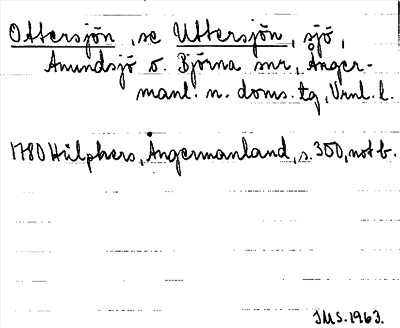 Ottersjön, se Uttersjön, sjö,
Anundsjö o. Björna snr, Ånger-
manl. n. doms. tg, Vrnl. l.
1780 Hülphers, Ångermanland, s. 300, not b.
IMS. 1963.